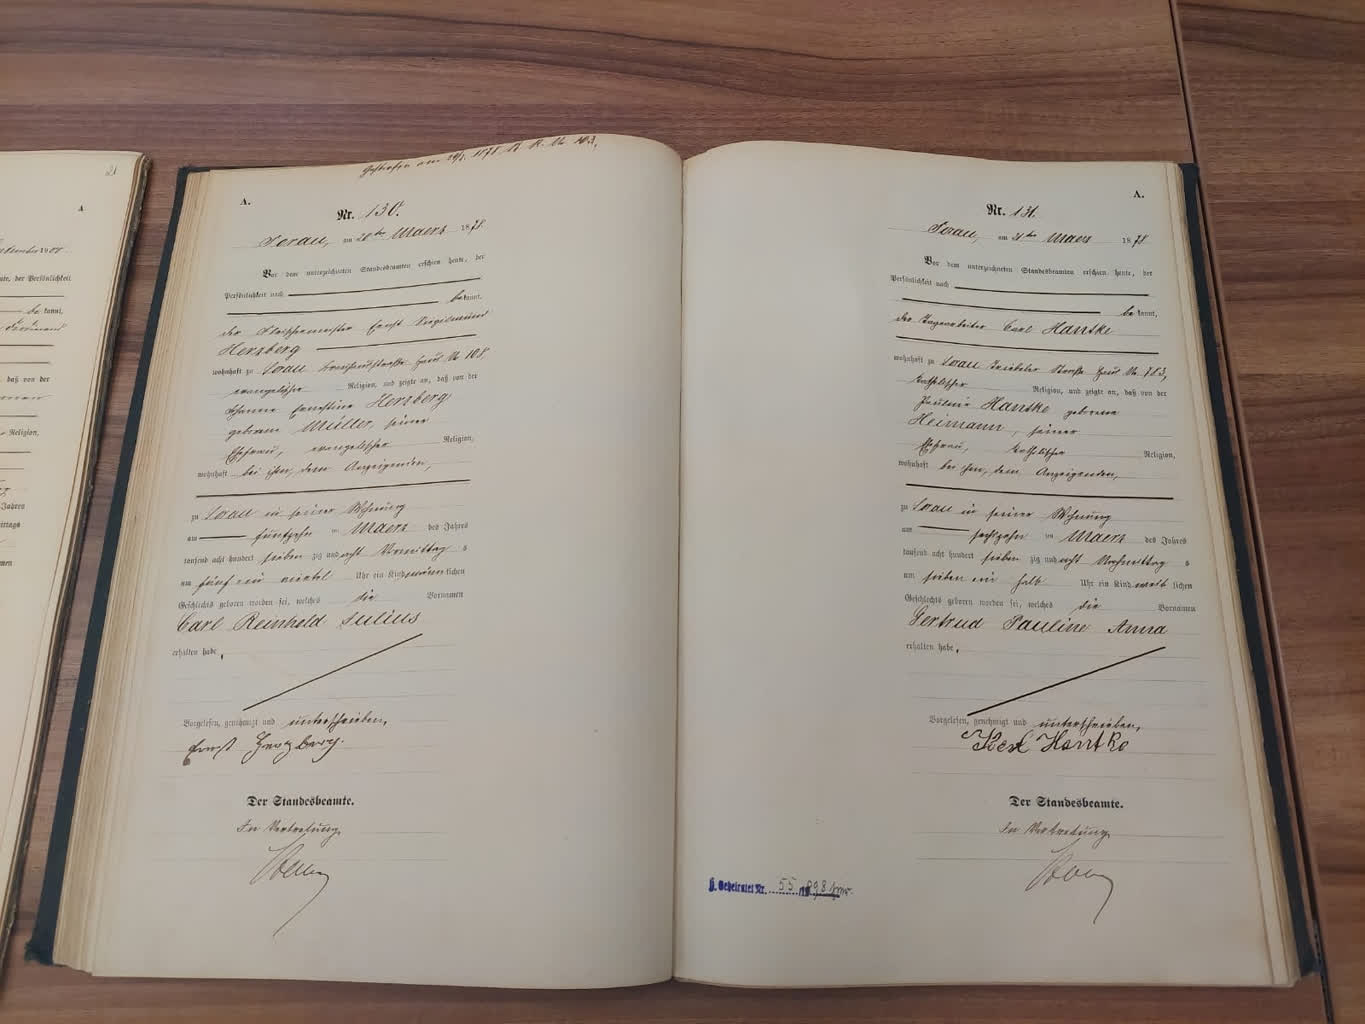 21
A
be kannt,
daß von der
Religion,
A.
Nr. 130.
Sorau, am 20ten Maerz 1878
Vor dem unterzeichneten Standesbeamten erschien heute, der
Persönlichkeit nach
be kannt,
der Fleischermeister Ernst
Herzberg
wohnhaft zu Sorau Haus No 108,
evangelischer Religion, und zeigte an, daß von der
Ernestine Herzberg
geborene Müller, seiner
Ehefrau, evangelischer Religion,
wohnhaft bei ihm, dem Anzeigenden,
zu Sorau in seiner Wohnung
am fünfzehn ten Maerz des Jahres
tausend acht hundert sieben zig und acht Vormittag s
um fünf ein viertel Uhr ein Kind männlichen
Geschlechts geboren worden sei, welches die Vornamen
Carl Reinhold Julius
erhalten habe.
Vorgelesen, genehmigt und unterschrieben,
Ernst Herzberg.
Der Standesbeamte.
In Vertretung
A.
Nr. 131.
Sorau, am 21ten Maerz 1878
Vor dem unterzeichneten Standesbeamten erschien heute, der
Persönlichkeit nach
be kannt,
der Tagearbeiter Carl Hantke
wohnhaft zu Sorau Triebeler Straße Haus No. 783,
katholischer Religion, und zeigte an, daß von der
Pauline Hantke geborene
Heimann, seiner
Ehefrau, katholischer Religion,
wohnhaft bei ihm, dem Anzeigenden,
zu Sorau in seiner Wohnung
am sechzehn ten Maerz des Jahres
tausend acht hundert sieben zig und acht Nachmittag s
um sieben ein halb Uhr ein Kind weib lichen
Geschlechts geboren worden sei, welches die Vornamen
Gertrud Pauline Anna
erhalten habe.
Vorgelesen, genehmigt und unterschrieben,
Karl Hantke
Der Standesbeamte.
In Vertretung
Geheiratet Nr. 55